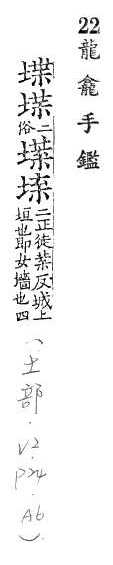 22龍龕手鑑
二俗
二正徒葉反城上
垣也即女墻也四
(土部.V2.P24.A6)